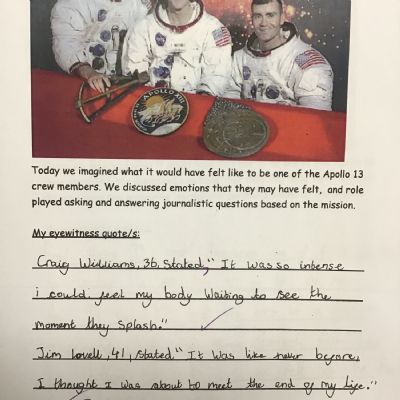 APOLLO XIII
Today we imagined what it would have felt like to be one of the Apollo 13
crew members. We discussed emotions that they may have felt, and role
played asking and answering journalistic questions based on the mission.
My eyewitness quote/s:
Craig Williams, 36, stated, "It was so intense
i could feel my body waiting to see the
moment they splash."
Jim Lovell, 41, stated "It was like never before,
I thought I was about to meet the end of my life."